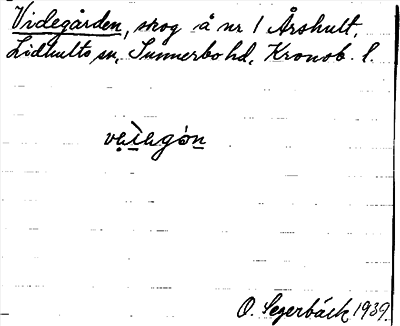 Videgården, skog å nr 1 Årshult,
Lidhults sn, Sunnerbo hd, Kronob. l.
O. Segerbäck 1939.